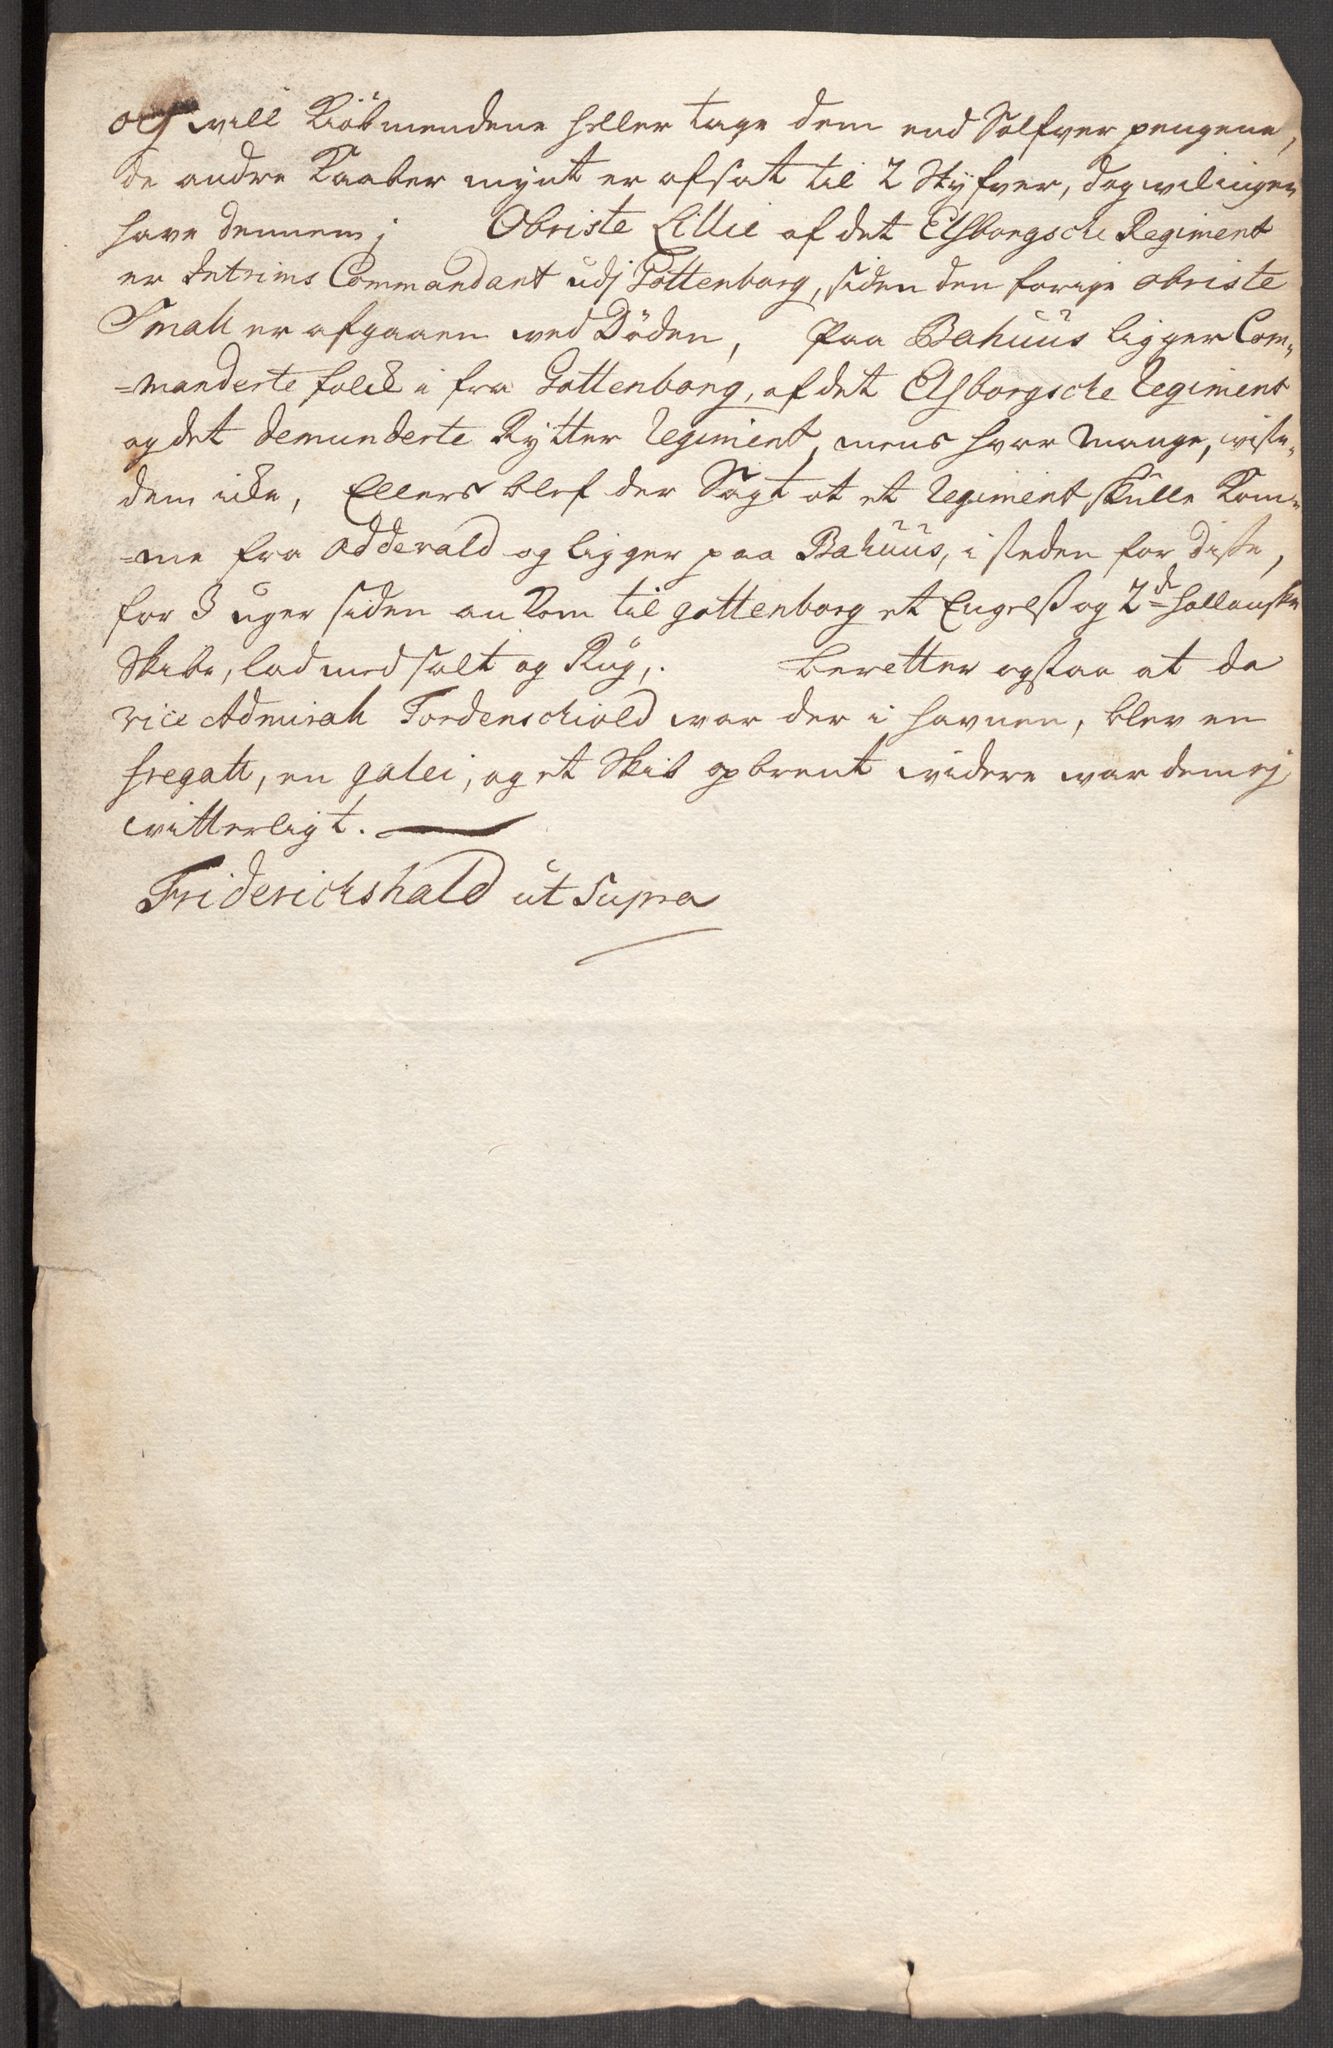 och will Kiöbmendene heller tage dem end Sølfver pengene,
de andre Kaaber mynt er afsat til 2 Styfver, dog wil ingen
have dennem; Obriste Lillie af det Elsborgsche Regiment
er Intrims Commandant udj Gottenborg, siden den forige obriste
Small er afgaaen wed Döden, Paa Bahuus ligger Com„
„manderte folck i fra Gottenborg, af det Elsborgsche Regiment
og det demunderte Rytter Regiment, mens hvor Mange, wiste„
dem icke, Ellers blef der Sagt at et Regiment skulle Kom„
„me fra Odderald og ligger paa Bahuus, i steden for disse,
for 3 uger siden an Kom til gottenborg et Engelsk og 2de Hollanske
Skibe, lad med salt og Rug,. beretter ogsaa at da
vice Admirall Tordenschiold war der i hafnen, blev en
fregatt, en galei, og et Skib opbrent widere war dem ej
witterligt.
Friderichshald ut Supra